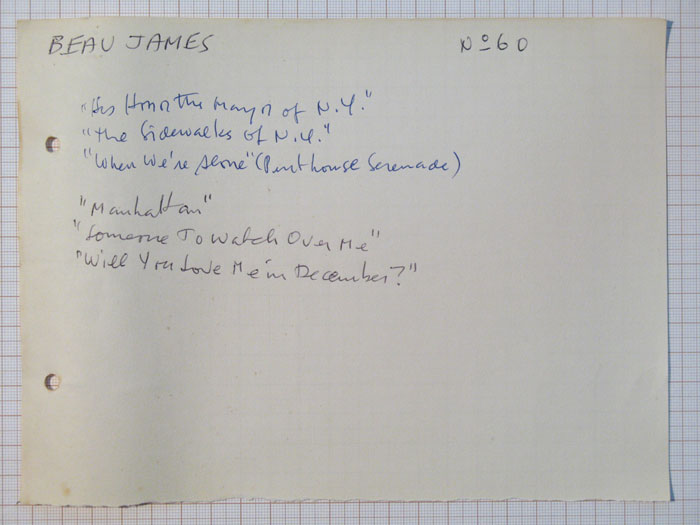 BEAU JAMES Nº 60
"His Honor the Mayor of N.Y."
"The Sidewalks of N.Y."
"When We're Alone" (Penthouse Serenade)
"Manhattan"
"Someone To Watch Over Me"
"Will You Love Me in December?"